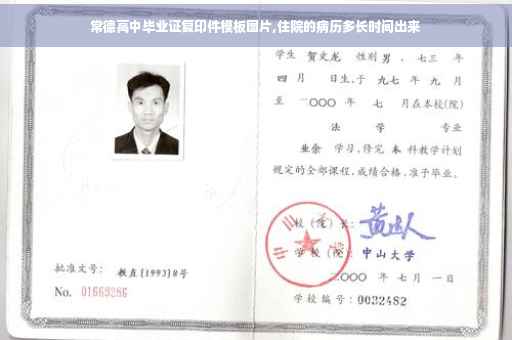 常德高中毕业证复印件模板图片,住院的病历多长时间出来
学生 贺文龙 性别 男 、七三 年
四 月 日生,于 九七 年 九 月
至 二〇〇〇 年 七 月在本校(院)
法 学 专业
业余 学习,修完 本 科教学计划
规定的全部课程,成绩合格,准予毕业。
校(院)长:
学校(院): 中山大学
二〇〇〇 年 七 月 一 日
学校编号: 0032482
批准文号: 教直[1993]8号
No. 01669286